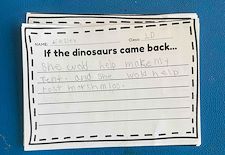 NAME: Class: 2D
If the dinosaurs came back...
She wold help make my
tent. and she wold help
rost marshmlos.